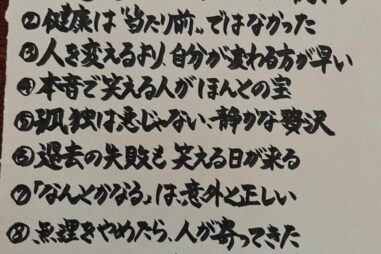 ②健康は"当たり前"ではなかった
③人を変えるより、自分が変わる方が早い
④本音で笑える人がほんとの宝
⑤孤独は悪じゃない、静かな贅沢
⑥過去の失敗も笑える日が来る
⑦「なんとかなる」は、意外と正しい
⑧無理をやめたら、人が寄ってきた